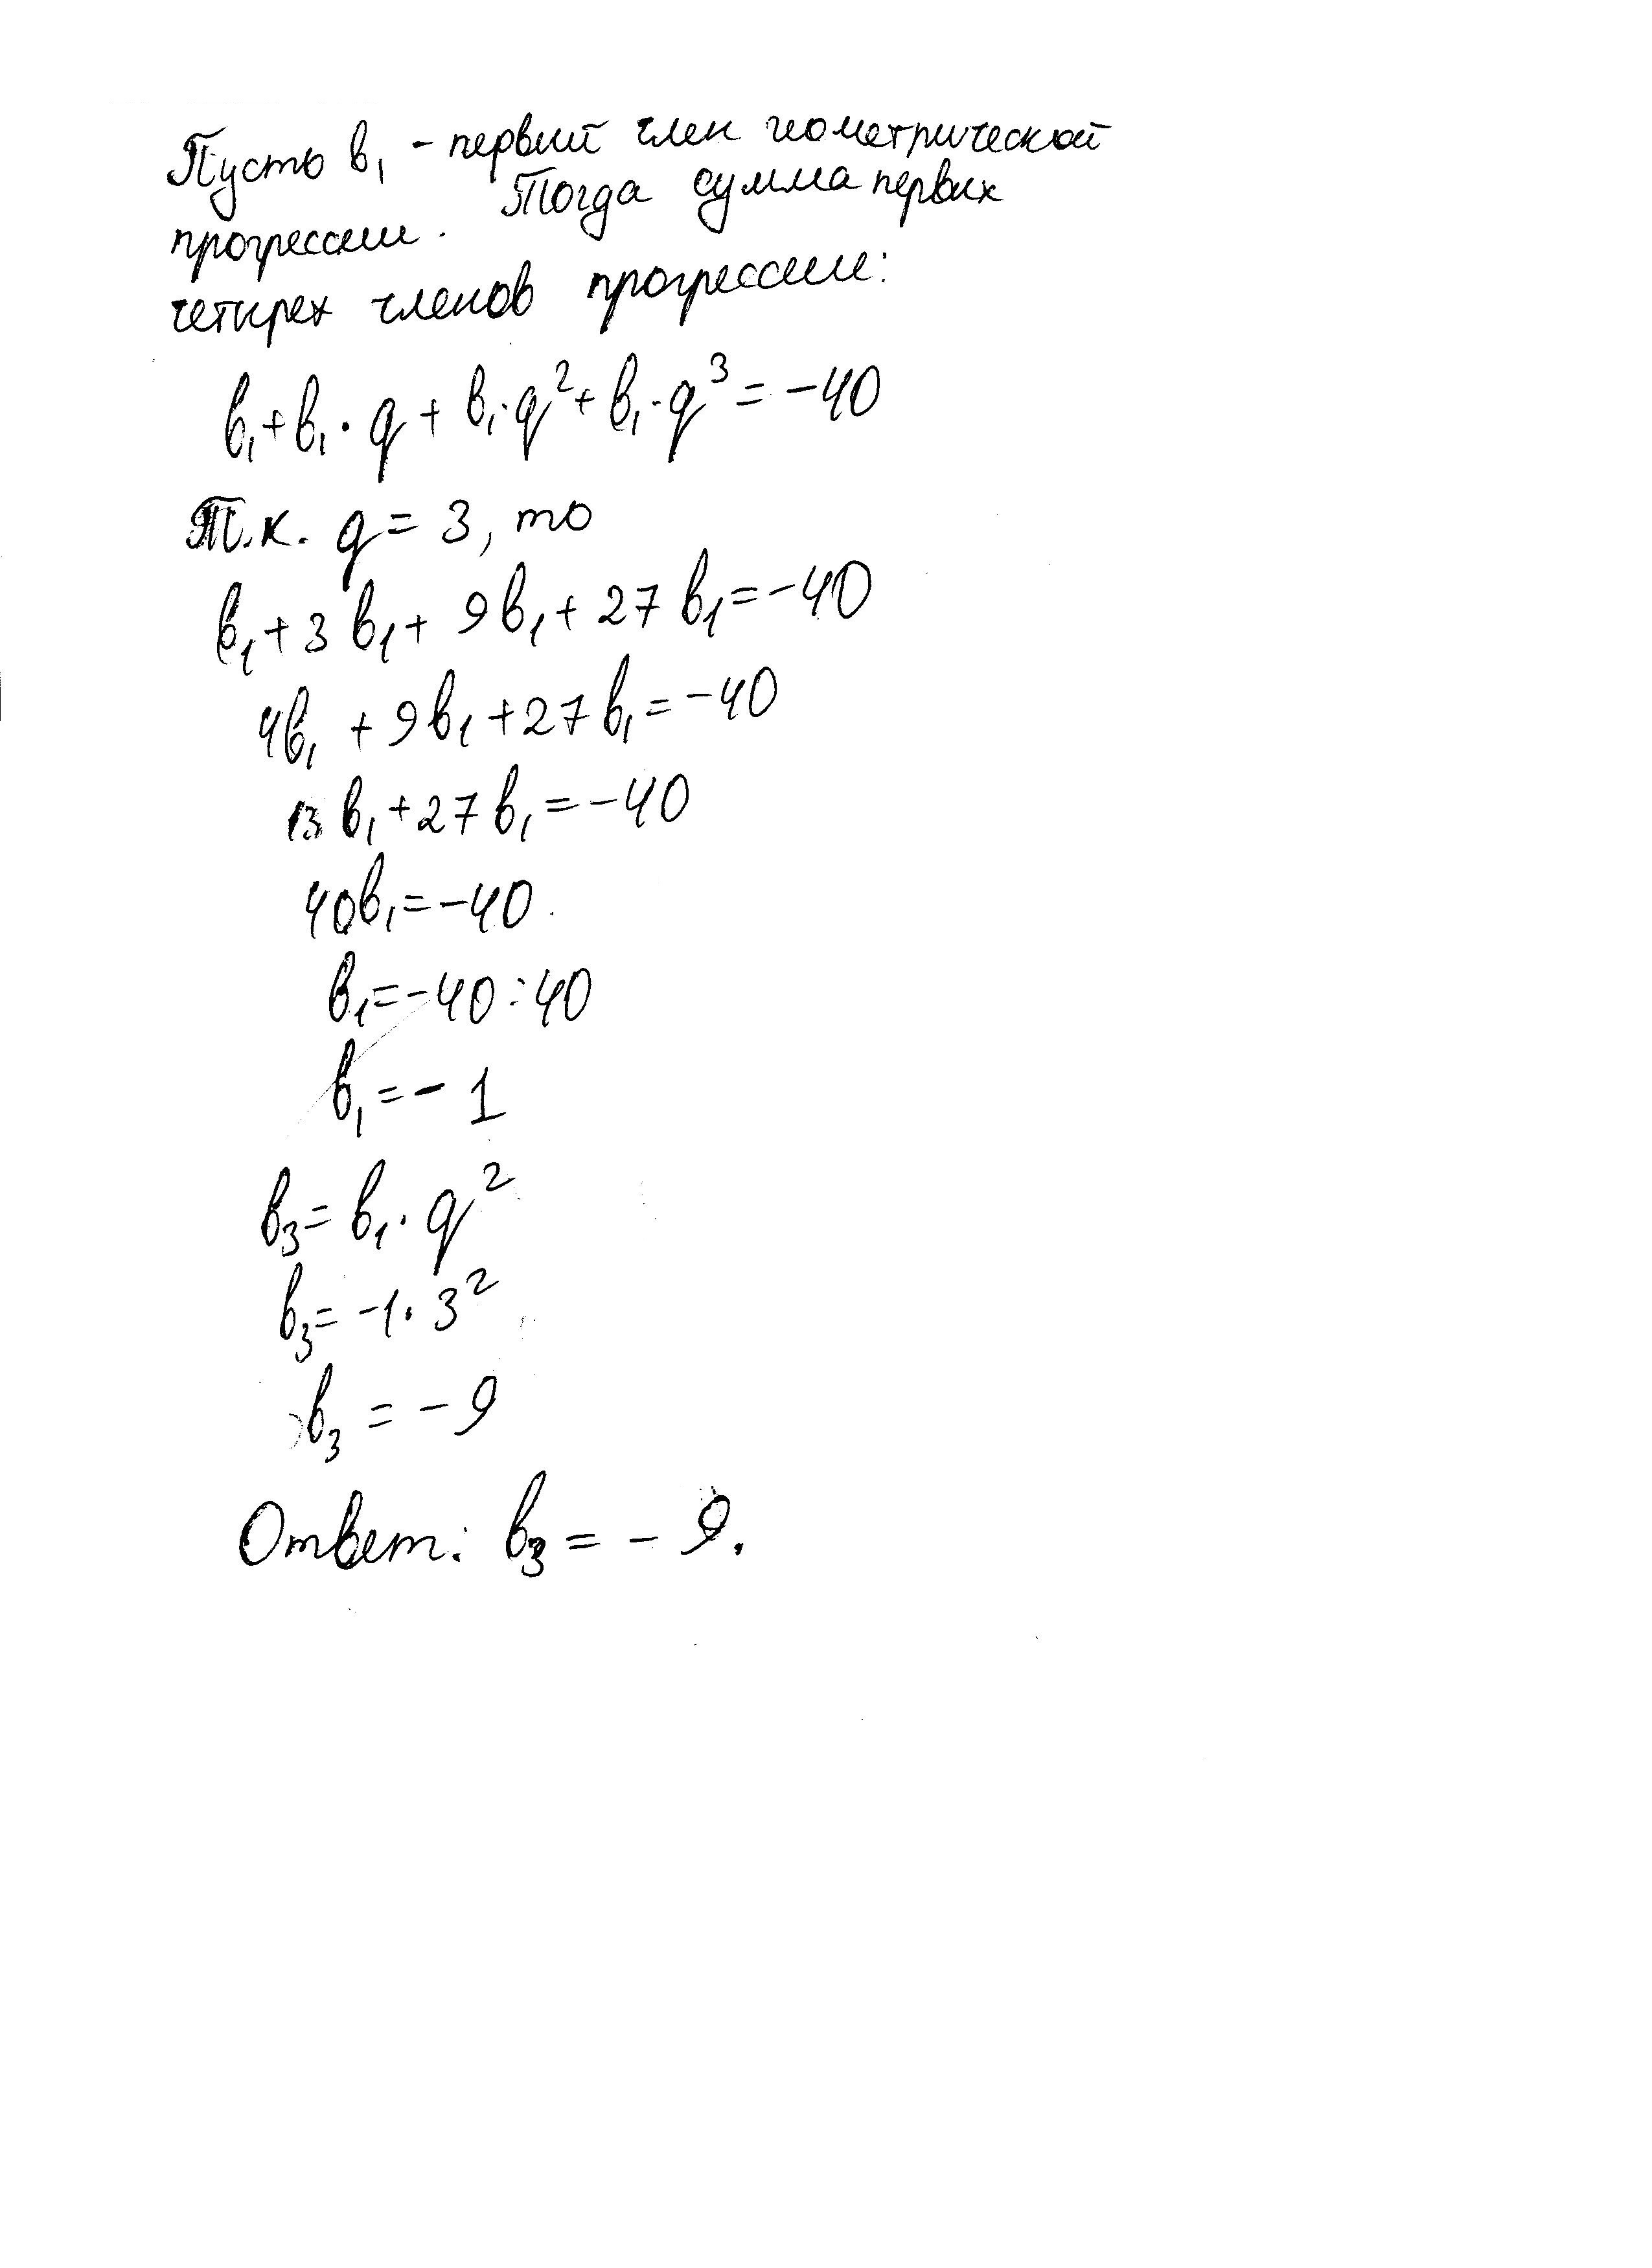 Пусть b₁ - первый член геометрической
прогрессии. Тогда сумма первых
четырех членов прогрессии:
b₁+b₁·q+b₁·q²+b₁·q³=-40
Т.к. q=3, то
b₁+3b₁+9b₁+27b₁=-40
4b₁+9b₁+27b₁=-40
13b₁+27b₁=-40
40b₁=-40
b₁=-40:40
b₁=-1
b₃=b₁·q²
b₃=-1·3²
b₃=-9
Ответ: b₃=-9.